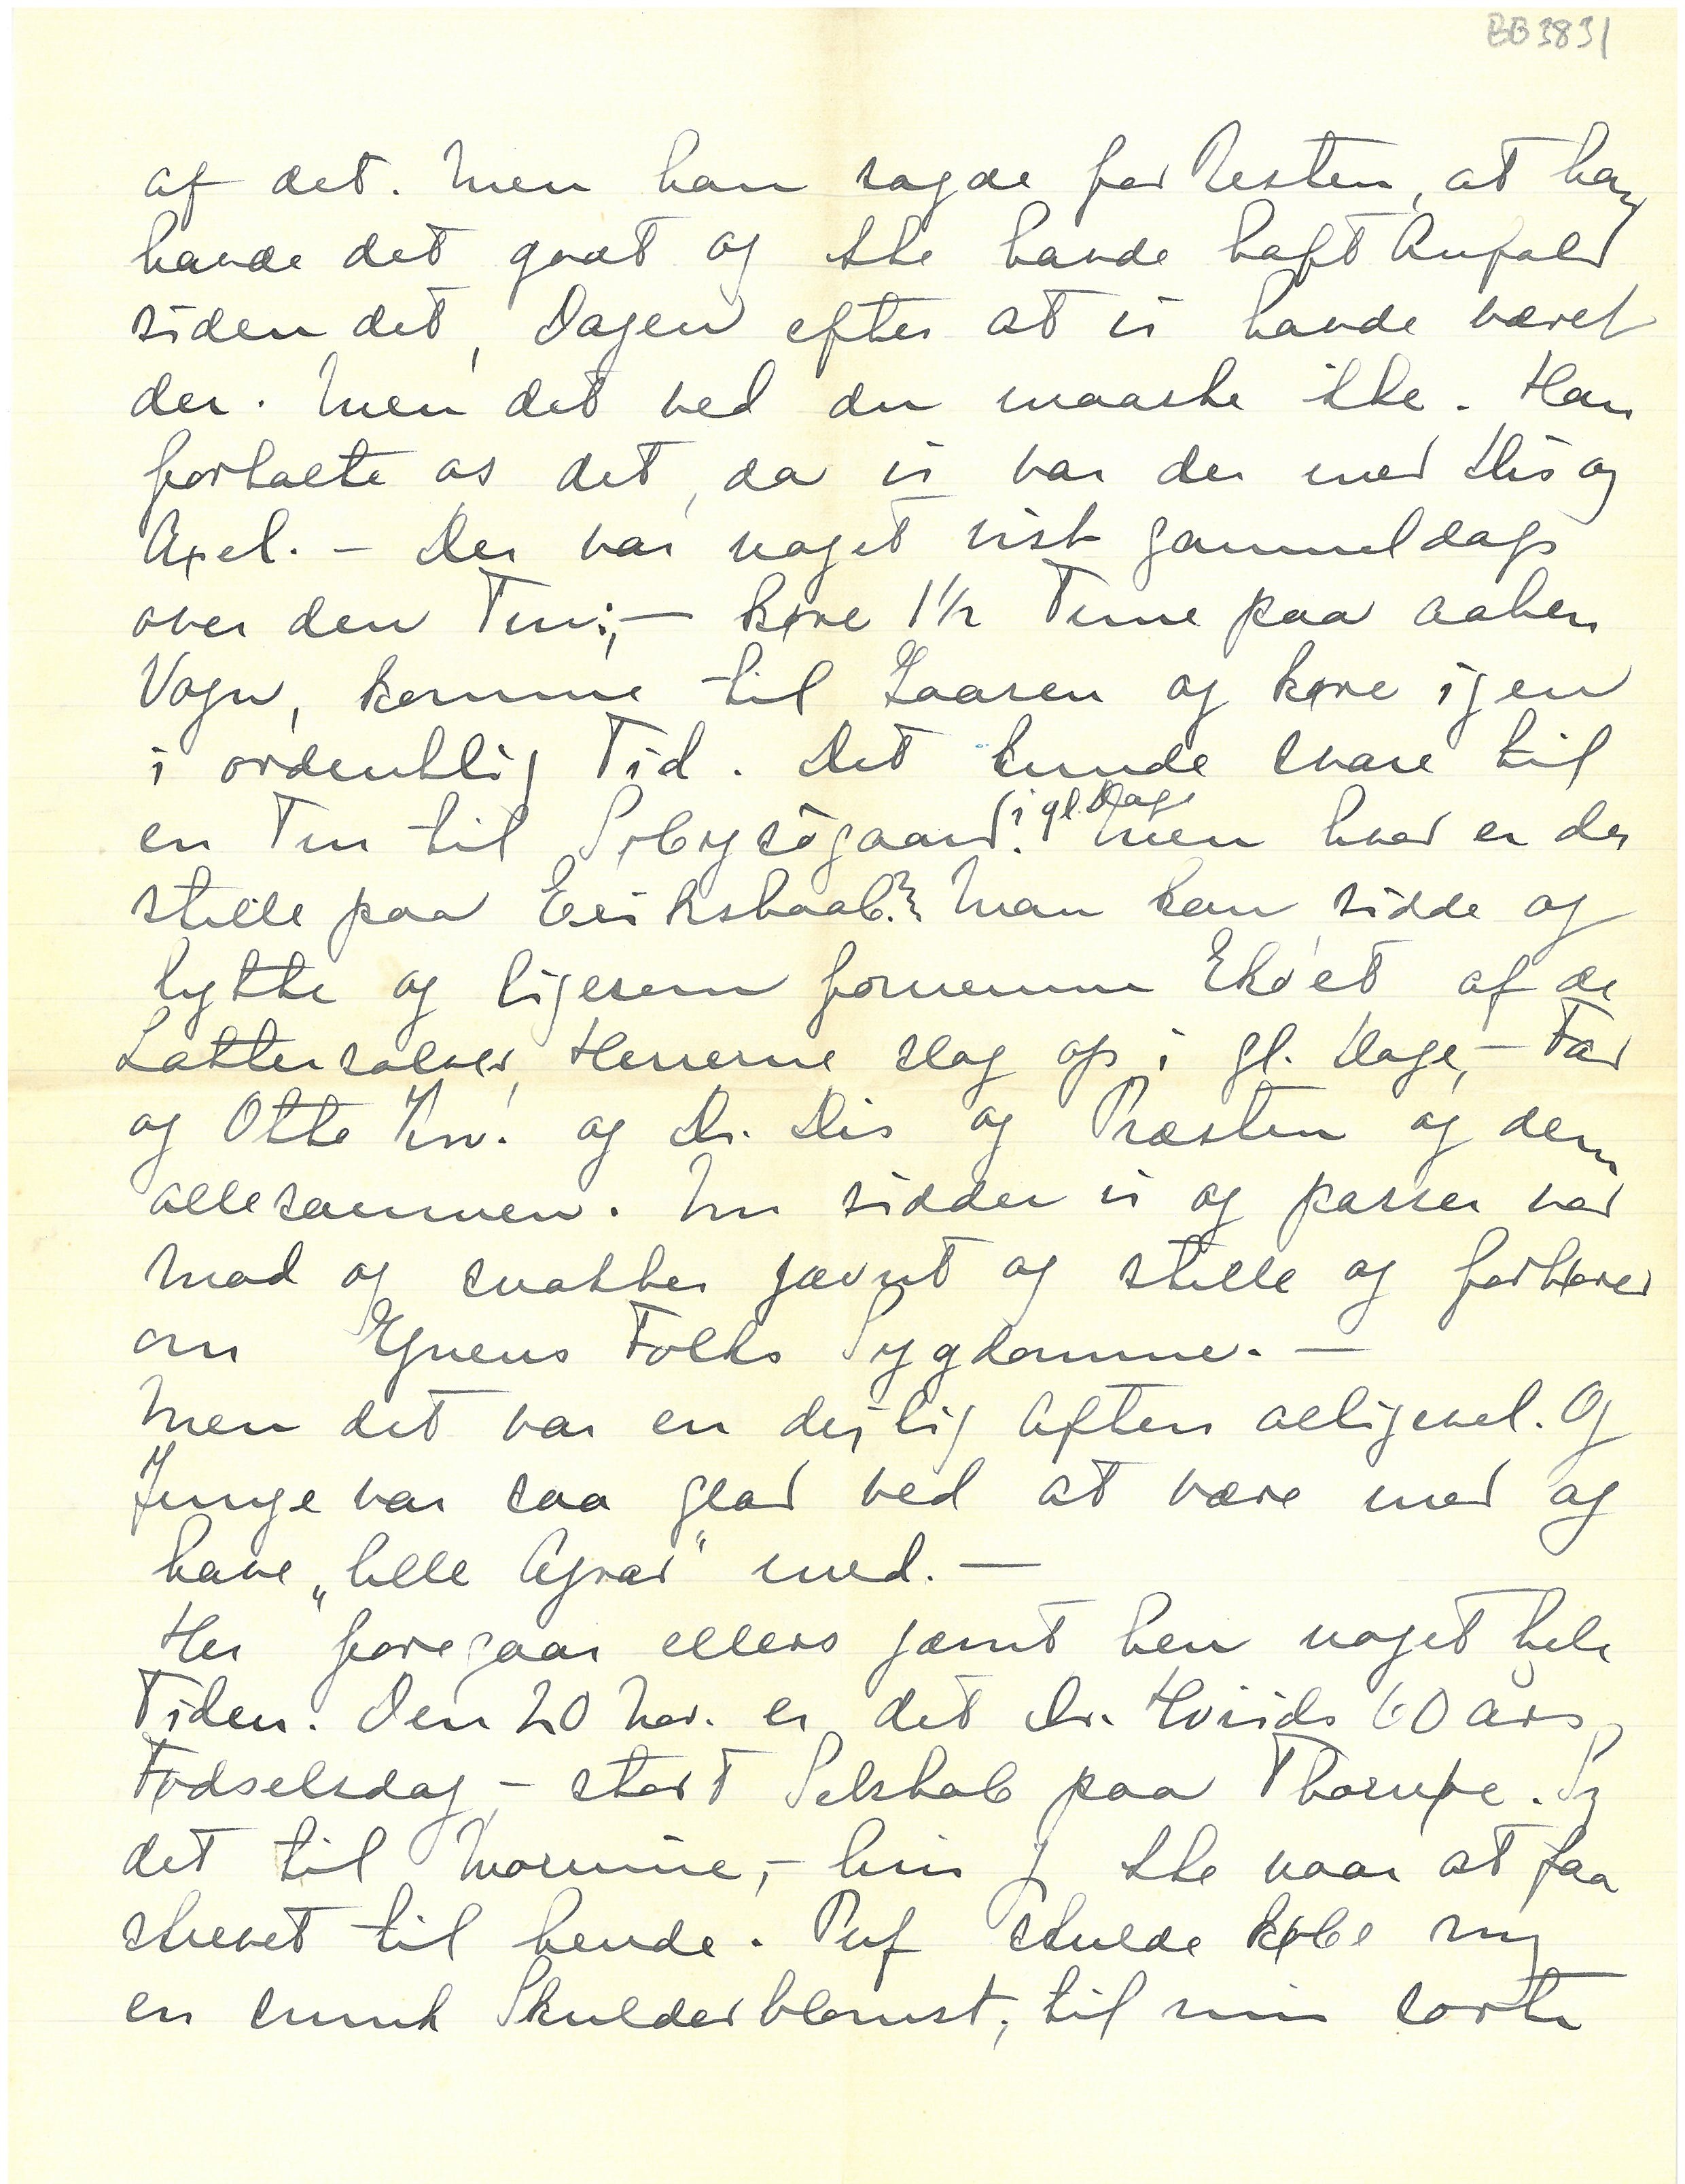 BB3831
af det. Men han sagde for Resten, at han
havde det godt og ikke havde haft Anfald
siden det, Dagen efter at vi havde været
der. Men det ved du maaske ikke. Han
fortalte os det, da vi var der med Dis og
Axel. – Der var noget vist gammeldags
over den Tur; – køre 1½ Time paa aaben
Vogn, komme til Laasen og køre igen
i ordentlig Tid. Det kunde svare til
en Tur til Søbysøgaard i gl. Dage. Men hvor er der
stille paa Erikshaab! Man kan sidde og
lytte og ligesom fornemme Ekkoet af de
Lattersalver, Herrerne slog op i gl. Dage, – Far
og Otte og Dr. Dis og Præsten og dem
allesammen. Nu sidder vi og passer vor
Mad og snakker jævnt og stille og forhører
om Egnens Folks Sygdomme. –
Men det var en dejlig Aften alligevel. Og
Junge var saa glad ved at være med og
have „lille Agrar" med. –
Her foregaar ellers jævnt hen noget hele
Tiden. Den 20 Nov. er det Dr. Hviids 60 års
Fødselsdag, – stort Selskab paa Thorupe. Sig
det til Mornine, – hvis jeg ikke naar at faa
skrevet til hende. Puf skulde købe mig
en smuk Skulderblomst, til min sorte